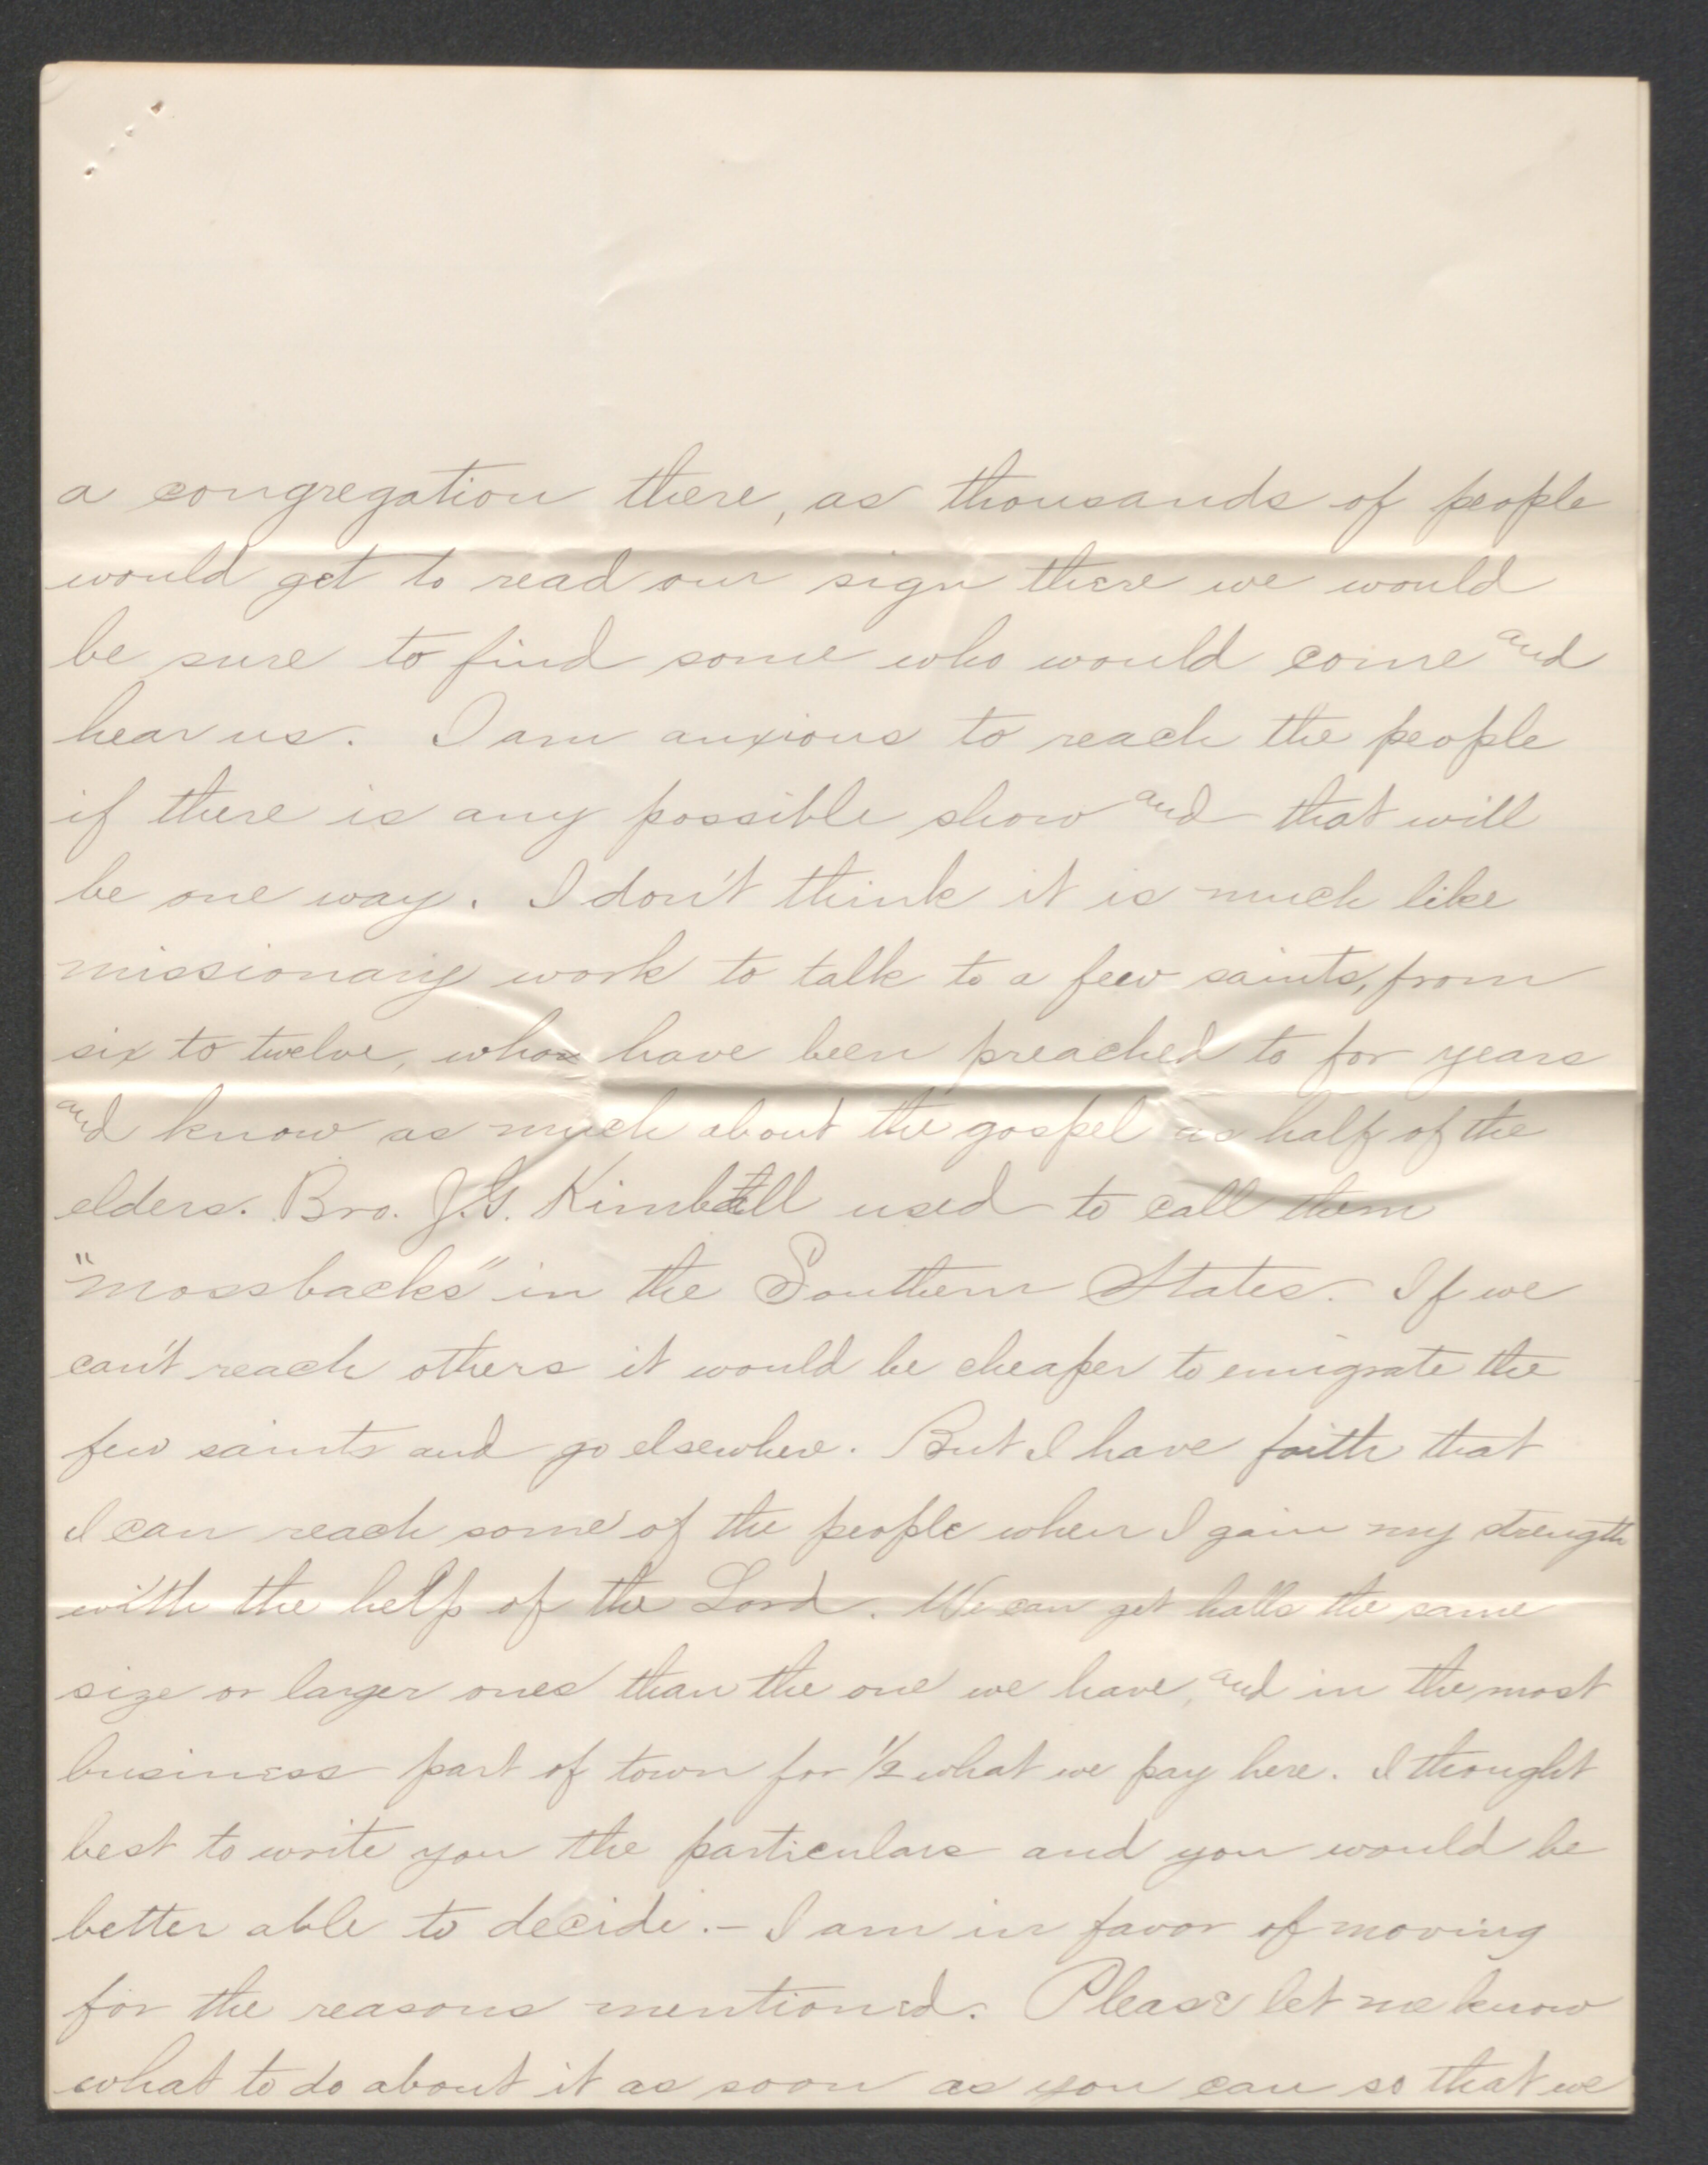 a congregation there, as thousands of people
would get to read our sign there we would
be sure to find some who would come and
hear us. I am anxious to reach the people
if there is any possible show and that will
be one way. I don't think it is much like
missionary work to talk to a few saints, from
six to twelve, who have been preached to for years
and know as much about the gospel as half of the
elders. Bro. J.G. Kimball used to call them
"mossbacks" in the Southern States. If we
can't reach others it would be cheaper to emigrate the
few saints and go elsewhere. But I have faith that
I can reach some of the people when I gain my strength
with the help of the Lord. We can get halls the same
size or larger ones than the one we have, and in the most
business part of town for 1/2 what we pay here. I thought
best to write you the particulars and you would be
better able to decide.- I am in favor of moving
for the reasons mentioned. Please let me know
what to do about it as soon as you can so that we